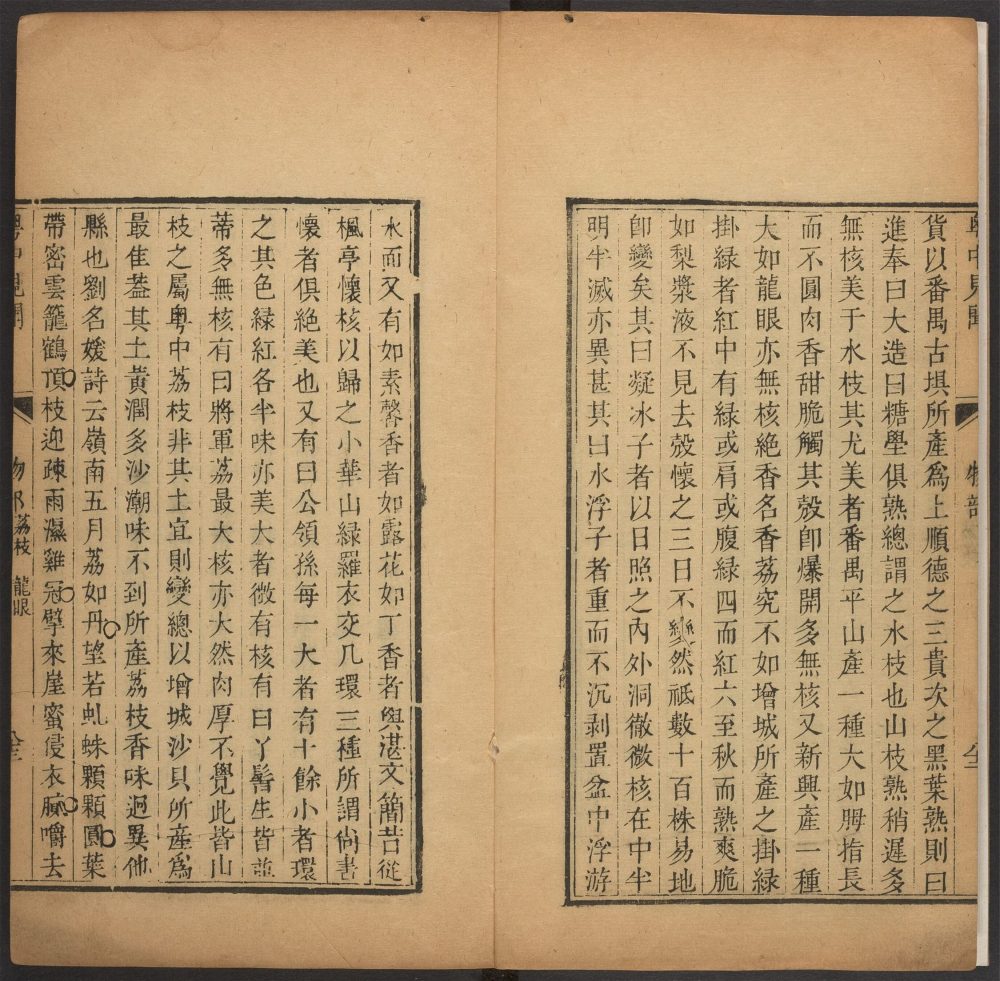 粵中見聞 物部
貨以番禺古埧所產爲上順德之三貴次之黑葉熟則曰
進奉曰大造曰糖壆俱熟總謂之水枝也山枝熟稍遲多
無核美于水枝其尤美者番禺平山產一種大如腁指長
而不圓肉香甜脆觸其殼卽爆開多無核又新興產一種
大如龍眼亦無核絕香名香荔究不如增城所產之掛綠
掛綠者紅中有綠或肩或腹綠四而紅六至秋而熟爽脆
如梨漿液不見去殼懷之三日不變然祗數十百株易地
卽變矣其曰凝冰子者以日照之內外洞徹微核在中半
明半滅亦異甚其曰水浮子者重而不沉剥置盆中浮游
水面又有如素馨香者如露花如丁香者與湛文簡昔從
楓亭懷核以歸之小華山綠羅衣交几環三種所謂尙書
懷者俱絕美也又有曰公領孫每一大者有十餘小者環
之其色綠紅各半味亦美大者微有核有曰丫髻生皆並
蒂多無核有曰將軍荔最大核亦大然肉厚不覺此皆山
枝之屬粤中荔枝非其土宜則變總以增城沙貝所產爲
最佳葢其土黄潤多沙潮味不到所產荔枝香味迥異他
縣也劉名媛詩云嶺南五月荔如丹望若虬蛛顆顆圓葉
帶密雲籠鶴頂枝迎疎雨濕雞冠擘來崖蜜侵衣膩嚼去
粵中見聞 物部 荔枝 龍眼